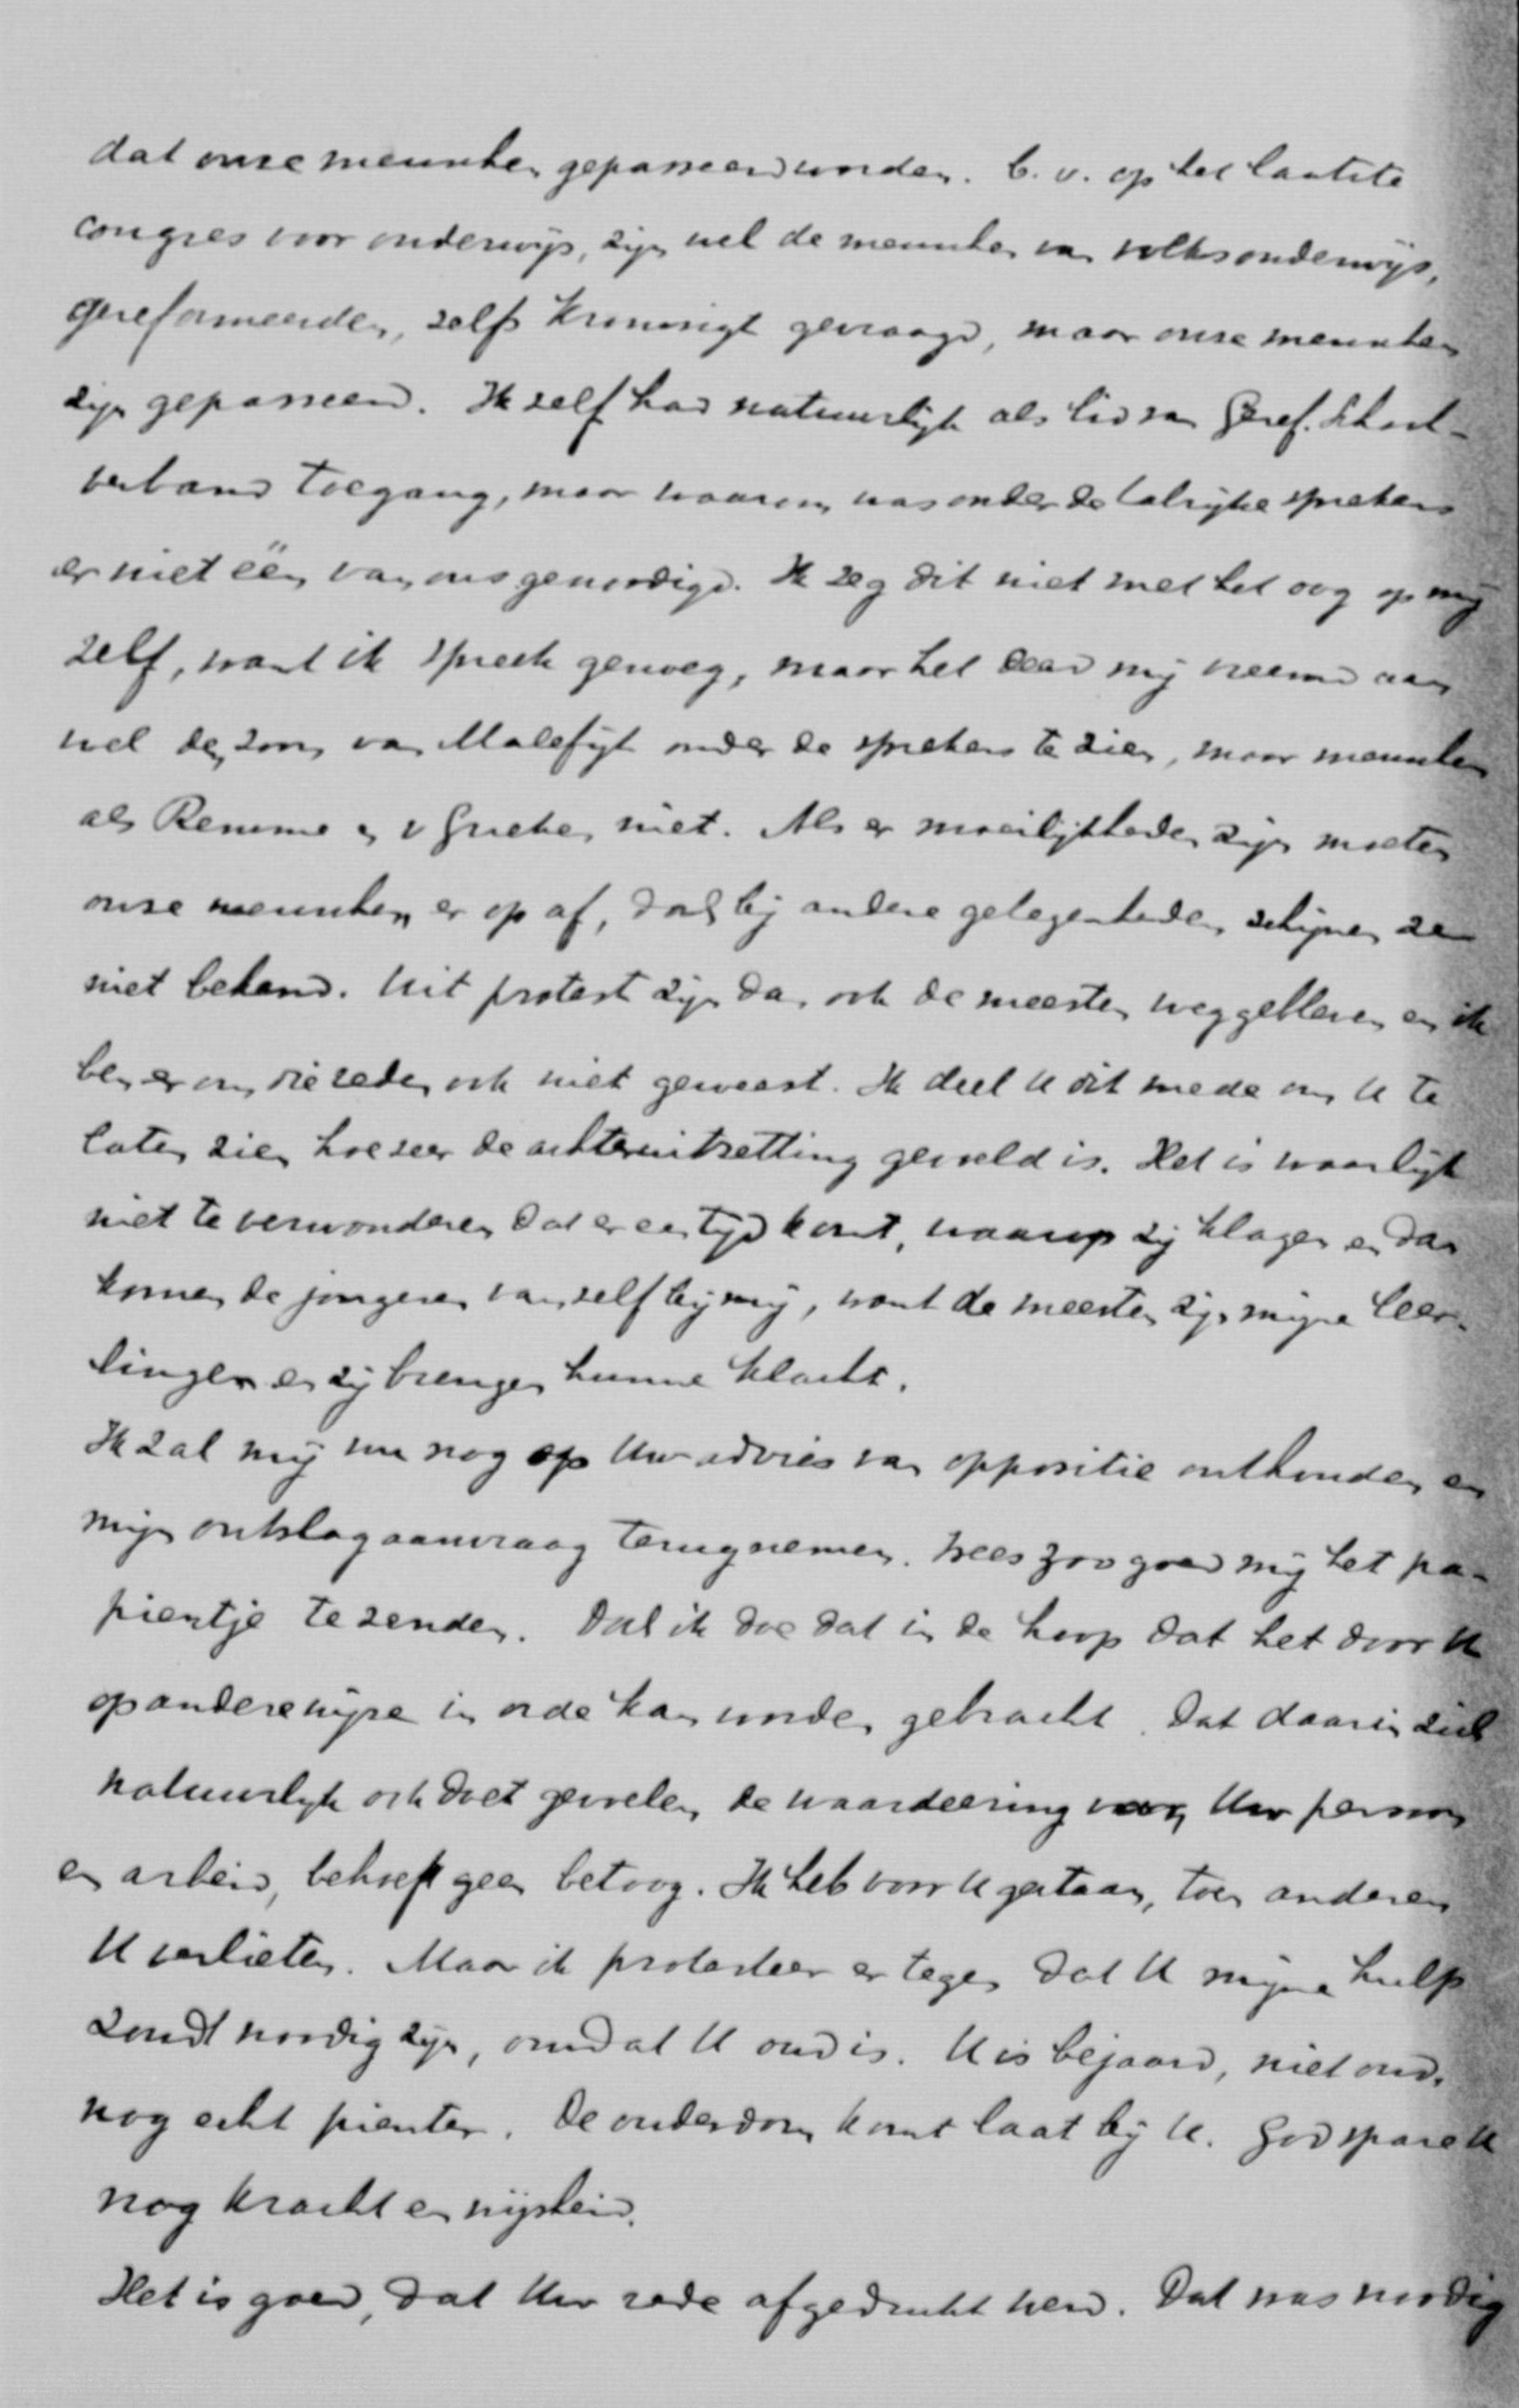 dat onze menschen gepasseerd worden. b.v. op het laatste
congres voor onderwijs, zijn wel de menschen van volksonderwijs,
gereformeerden, zelfs Kromsigt gevraagd, maar onze menschen
zijn gepasseerd. Ik zelf had natuurlijk als lid van Geref. School-
verband toegang, maar waarom was onder de talrijke sprekers
er niet één van ons genoodigd. Ik zeg dit niet met het oog op mij
zelf, want ik spreek genoeg, maar het deed mij vreemd aan
wel de zoon van Malefijt onder de sprekers te zien, maar menschen
als Remme en niet. Als er moeilijkheden zijn moeten
onze menschen er op af, doch bij andere gelegenheden schijnen ze
niet bekend. Uit protest zijn dan ook de meesten weggebleven en ik
ben er om die reden ook niet geweest. Ik deel U dit mede om U te
laten zien hoezeer de achteruitzetting gevoeld is. Het is waarlijk
niet te verwonderen dat er een tijd komt, waarop zij klagen en dan
komen de jongeren vanzelf bij mij, want de meesten zijn mijne leer-
lingen en zij brengen hunne klacht.
Ik zal mij nu nog op Uw advies van oppositie onthouden en
mijn ontslagaanvraag terugnemen. Wees zoo goed mij het pa-
piertje te zenden. Doch ik doe dat in de hoop dat het door U
op andere wijze in orde kan worden gebracht. Dat daarin zich
natuurlijk ook doet gevoelen de waardeering voor Uw persoon
en arbeid, behoeft geen betoog. Ik heb voor U gestaan, toen anderen
U verlieten. Maar ik protesteer er tegen dat U mijne hulp
zoudt noodig zijn, omdat U oud is. U is bejaard, niet oud.
nog echt pienter. De ouderdom komt laat bij U. God spare U
nog kracht en wijsheid.
Het is goed, dat Uw rede afgedrukt werd. Dat was noodig